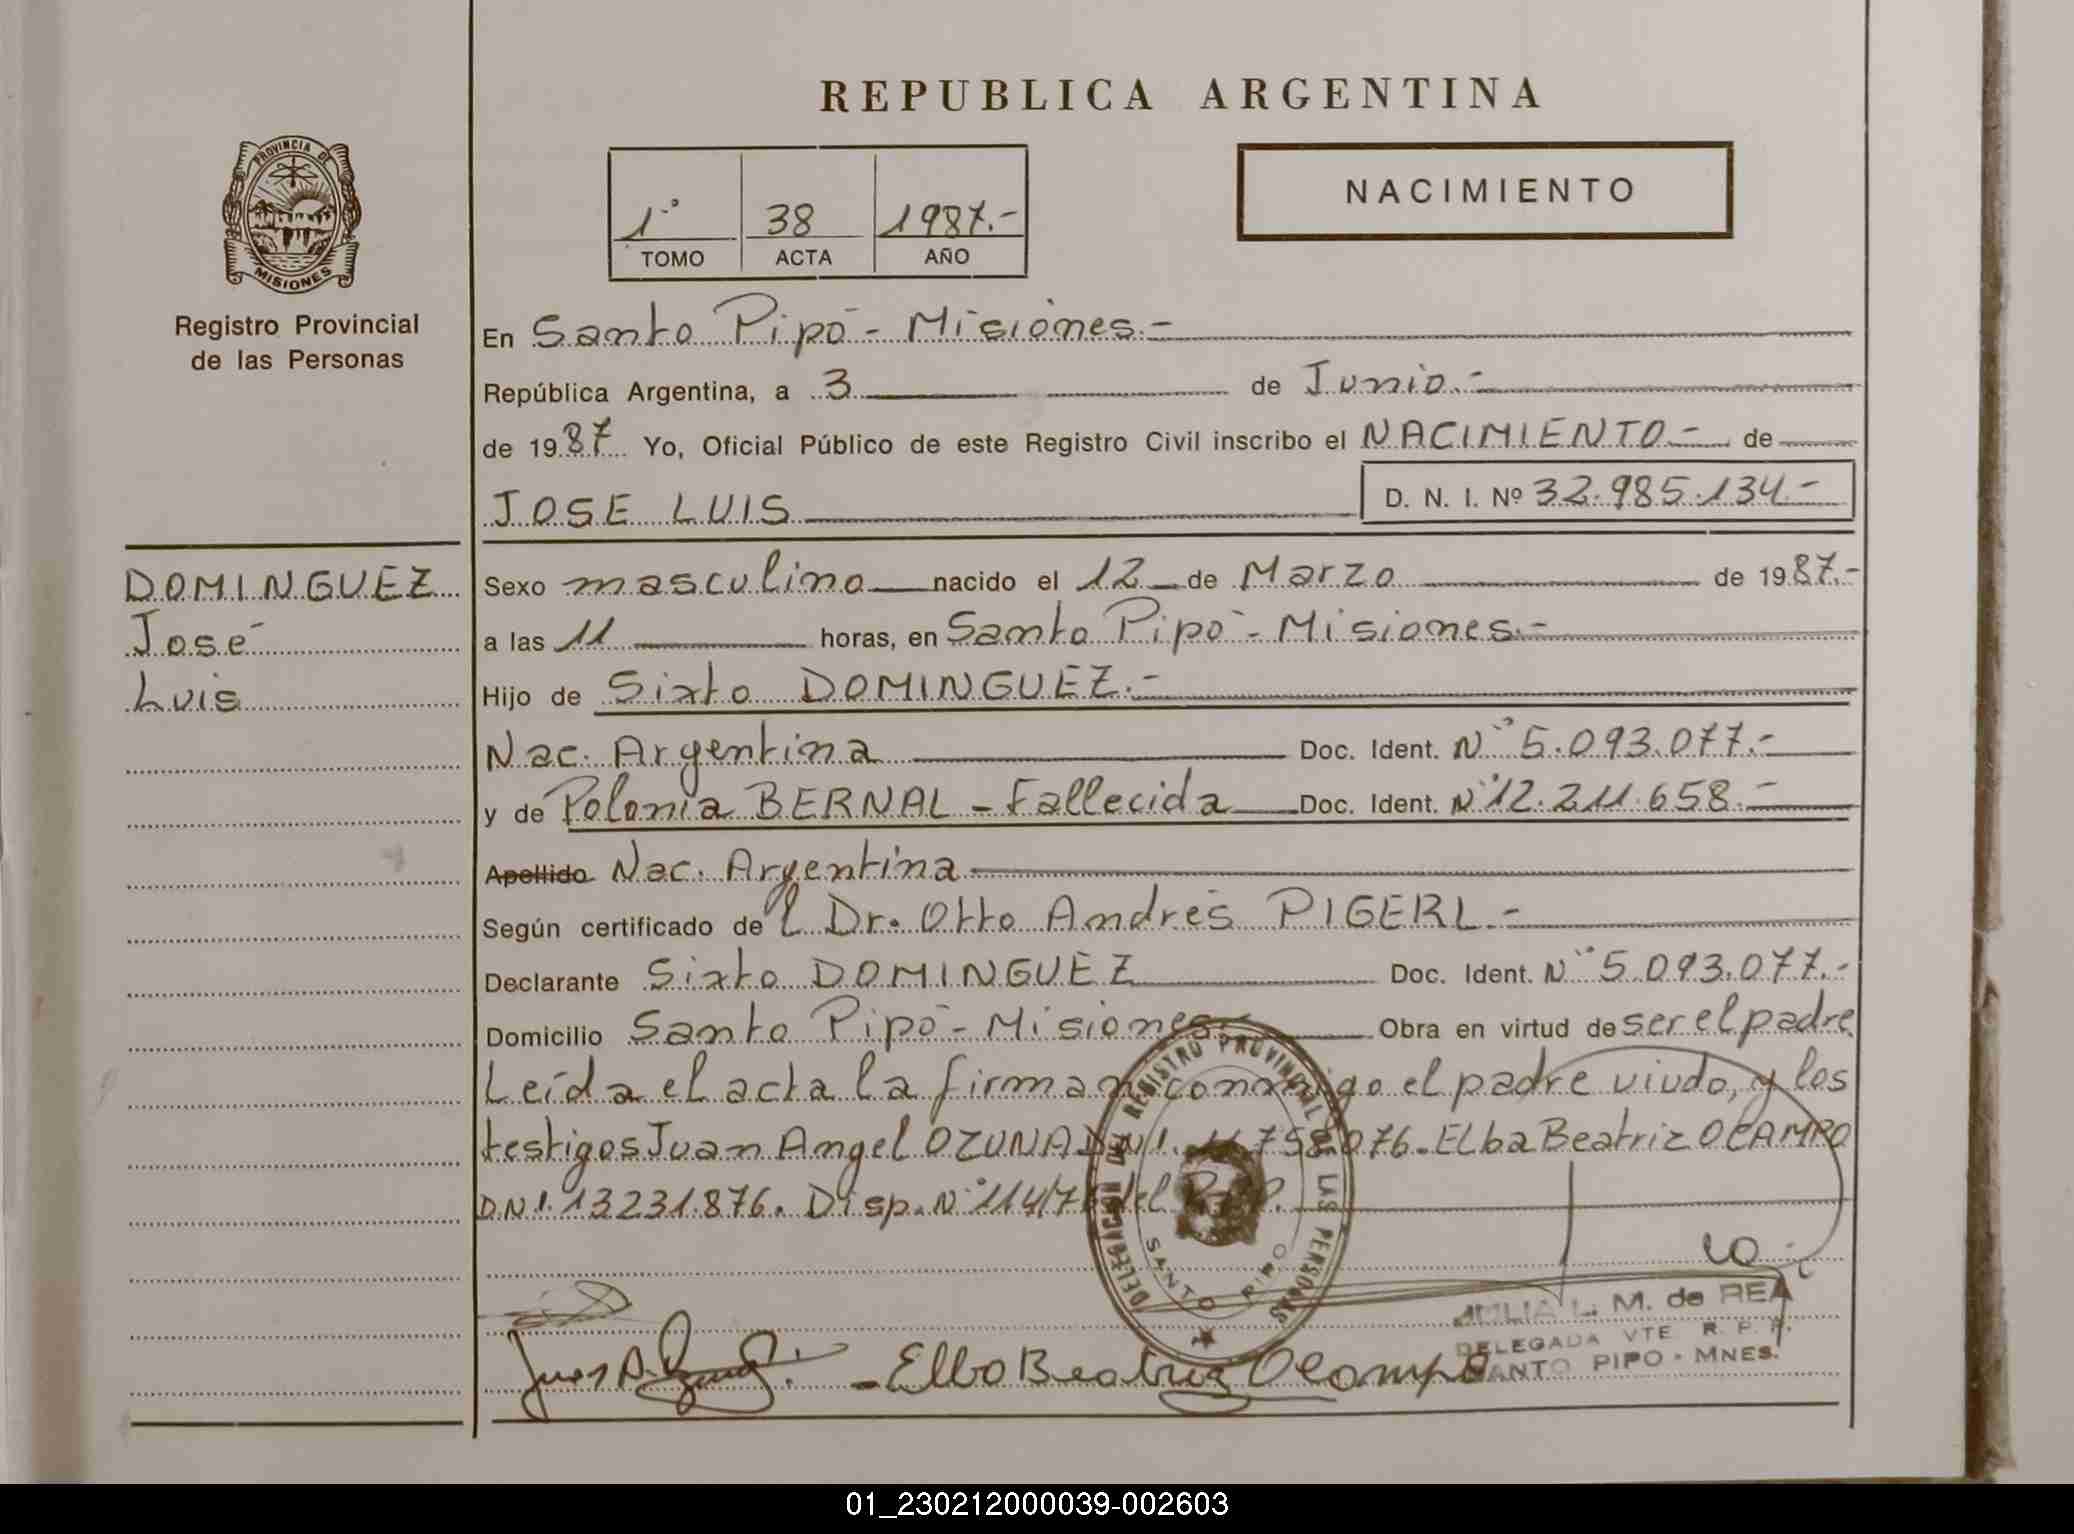 REPUBLICA ARGENTINA
PROVINCIA DE
MISIONES
Registro Provincial
de las Personas
1º 38 1987.-
TOMO ACTA AÑO
NACIMIENTO
En Santo Pipó - Misiones.-
República Argentina, a 3 de Junio.-
de 1987 Yo, Oficial Público de este Registro Civil inscribo el NACIMIENTO - de
JOSE LUIS D. N. I. Nº 32.985.134.-
DOMINGUEZ
José
Luis
Sexo masculino nacido el 12 de Marzo de 1987.-
a las 11 horas, en Santo Pipó - Misiones.-
Hijo de Sixto DOMINGUEZ.-
Nac. Argentina Doc. Ident. Nº 5.093.077.-
y de Polonia BERNAL - Fallecida Doc. Ident. Nº 12.211.658.-
Apellido Nac. Argentina
Según certificado de l Dr. Otto Andrés PIGERL.-
Declarante Sixto DOMINGUEZ Doc. Ident. Nº 5.093.077.-
Domicilio Santo Pipó - Misiones.- Obra en virtud de ser el padre
Leída el acta la firman conmigo el padre viudo, y los
testigos Juan Angel OZUNA D.N.I. 11.758.076. Elba Beatriz OCAMPO
D.N.I. 13231.876. Disp. Nº 114/7 del R.P.P.
DELEGACION DEL REGISTRO PROVINCIAL DE LAS PERSONAS
SANTO PIPO
L. M. de REA
DELEGADA VTE. R. P. P.
SANTO PIPO - MNES.
Juan A.
- Elba Beatriz Ocampo
01_230212000039-002603